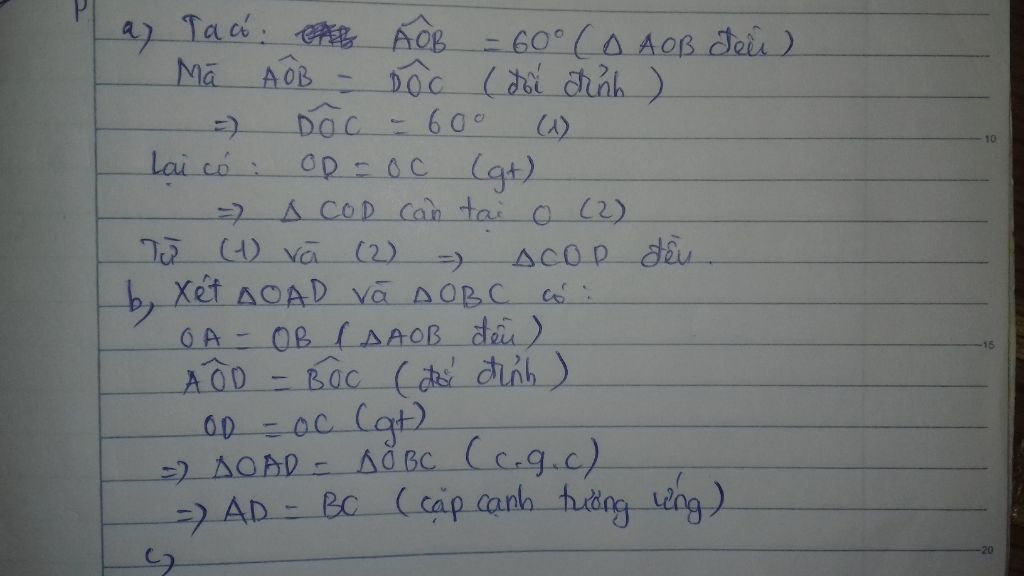 a) Ta có: AÔB = 60° (Δ AOB đều)
Mà AÔB = DÔC (đối đỉnh)
=> DÔC = 60° (1)
Lại có: OD = OC (gt)
=> Δ COD cân tại O (2)
Từ (1) và (2) => ΔCOD đều.
b, Xét ΔOAD và ΔOBC có:
OA = OB (ΔAOB đều)
AÔD = BÔC (đối đỉnh)
OD = OC (gt)
=> ΔOAD = ΔOBC (c.g.c)
=> AD = BC (cặp cạnh tương ứng)
c,
10
15
20